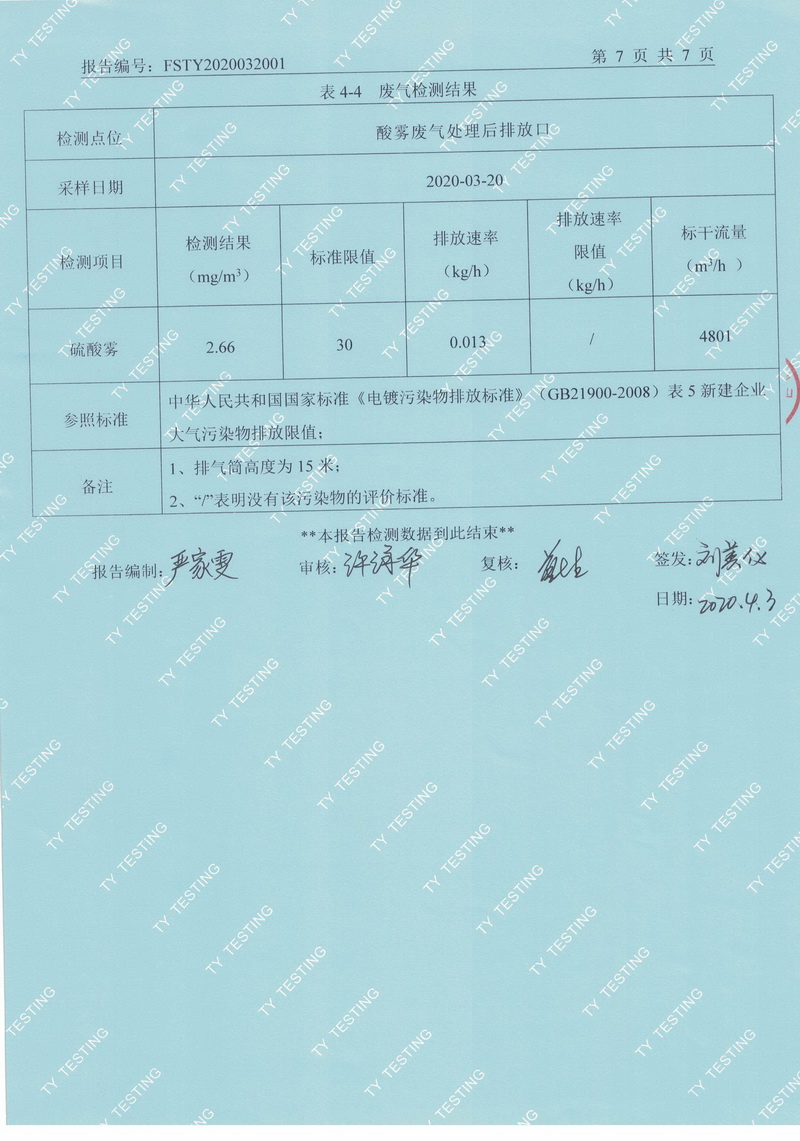 报告编号：FSTY2020032001
第 7 页 共 7 页
表 4-4 废气检测结果
检测点位 酸雾废气处理后排放口
采样日期 2020-03-20
检测项目 检测结果（mg/m³） 标准限值 排放速率（kg/h） 排放速率限值（kg/h） 标干流量（m³/h ）
硫酸雾 2.66 30 0.013 / 4801
参照标准 中华人民共和国国家标准《电镀污染物排放标准》（GB21900-2008）表 5 新建企业
大气污染物排放限值；
备注 1、排气筒高度为 15 米；
2、“/”表明没有该污染物的评价标准。
**本报告检测数据到此结束**
报告编制：严家雯 审核： 复核： 签发：刘美仪
日期：2020.4.3
TY TESTING